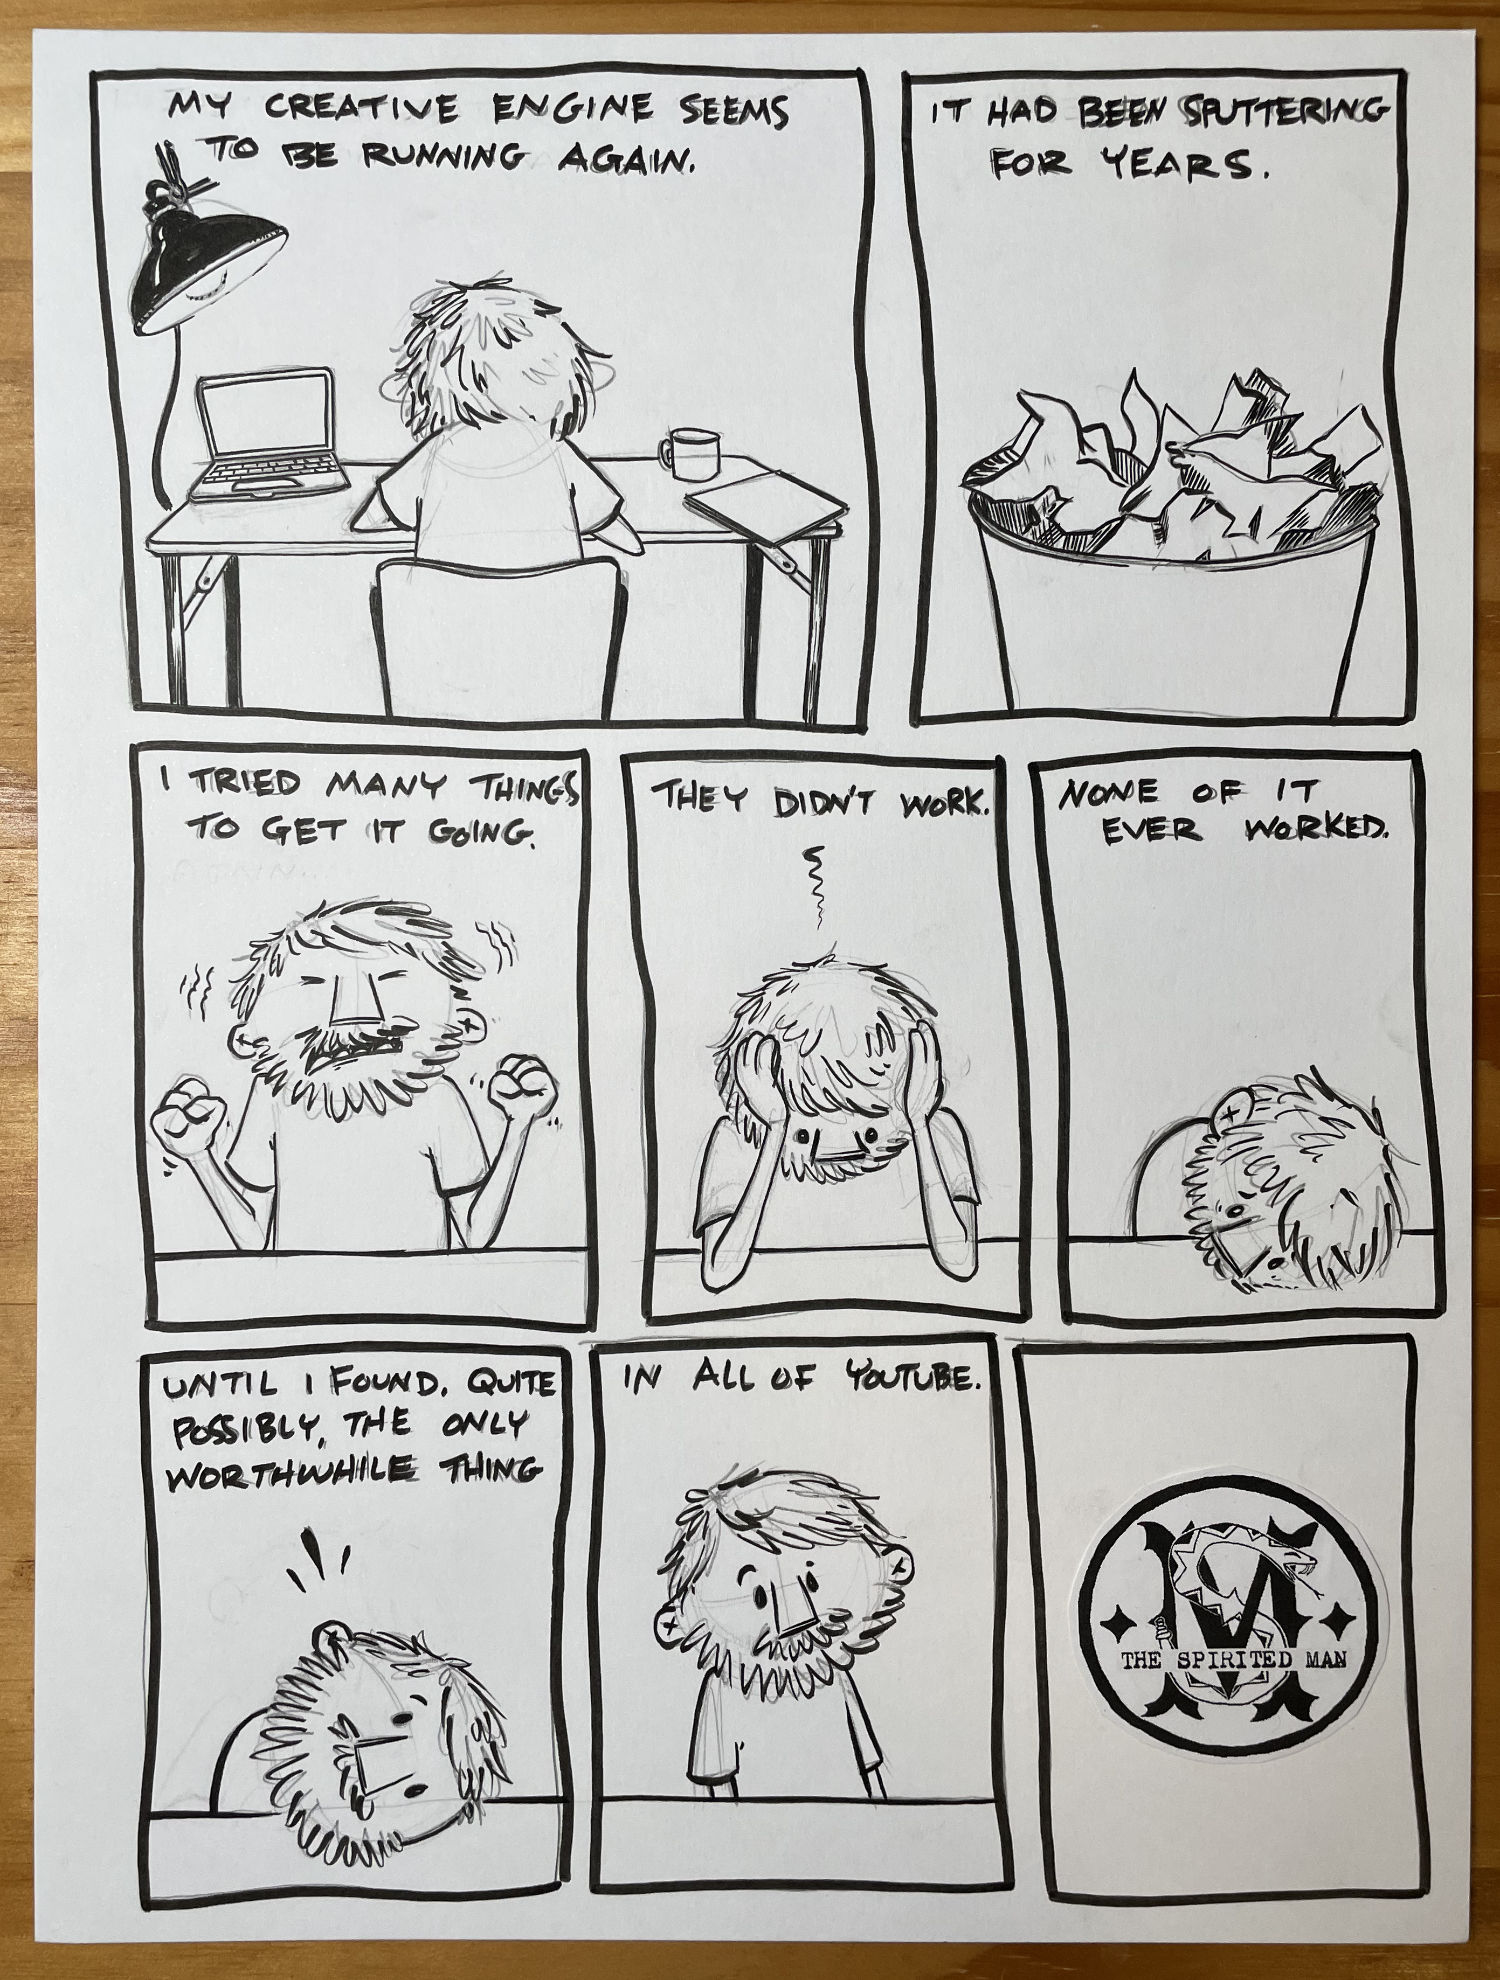 MY CREATIVE ENGINE SEEMS
TO BE RUNNING AGAIN.
IT HAD BEEN SPUTTERING
FOR YEARS.
I TRIED MANY THINGS
TO GET IT GOING.
THEY DIDN'T WORK.
NONE OF IT
EVER WORKED.
UNTIL I FOUND, QUITE
POSSIBLY, THE ONLY
WORTHWHILE THING
IN ALL OF YOUTUBE.
M
THE SPIRITED MAN